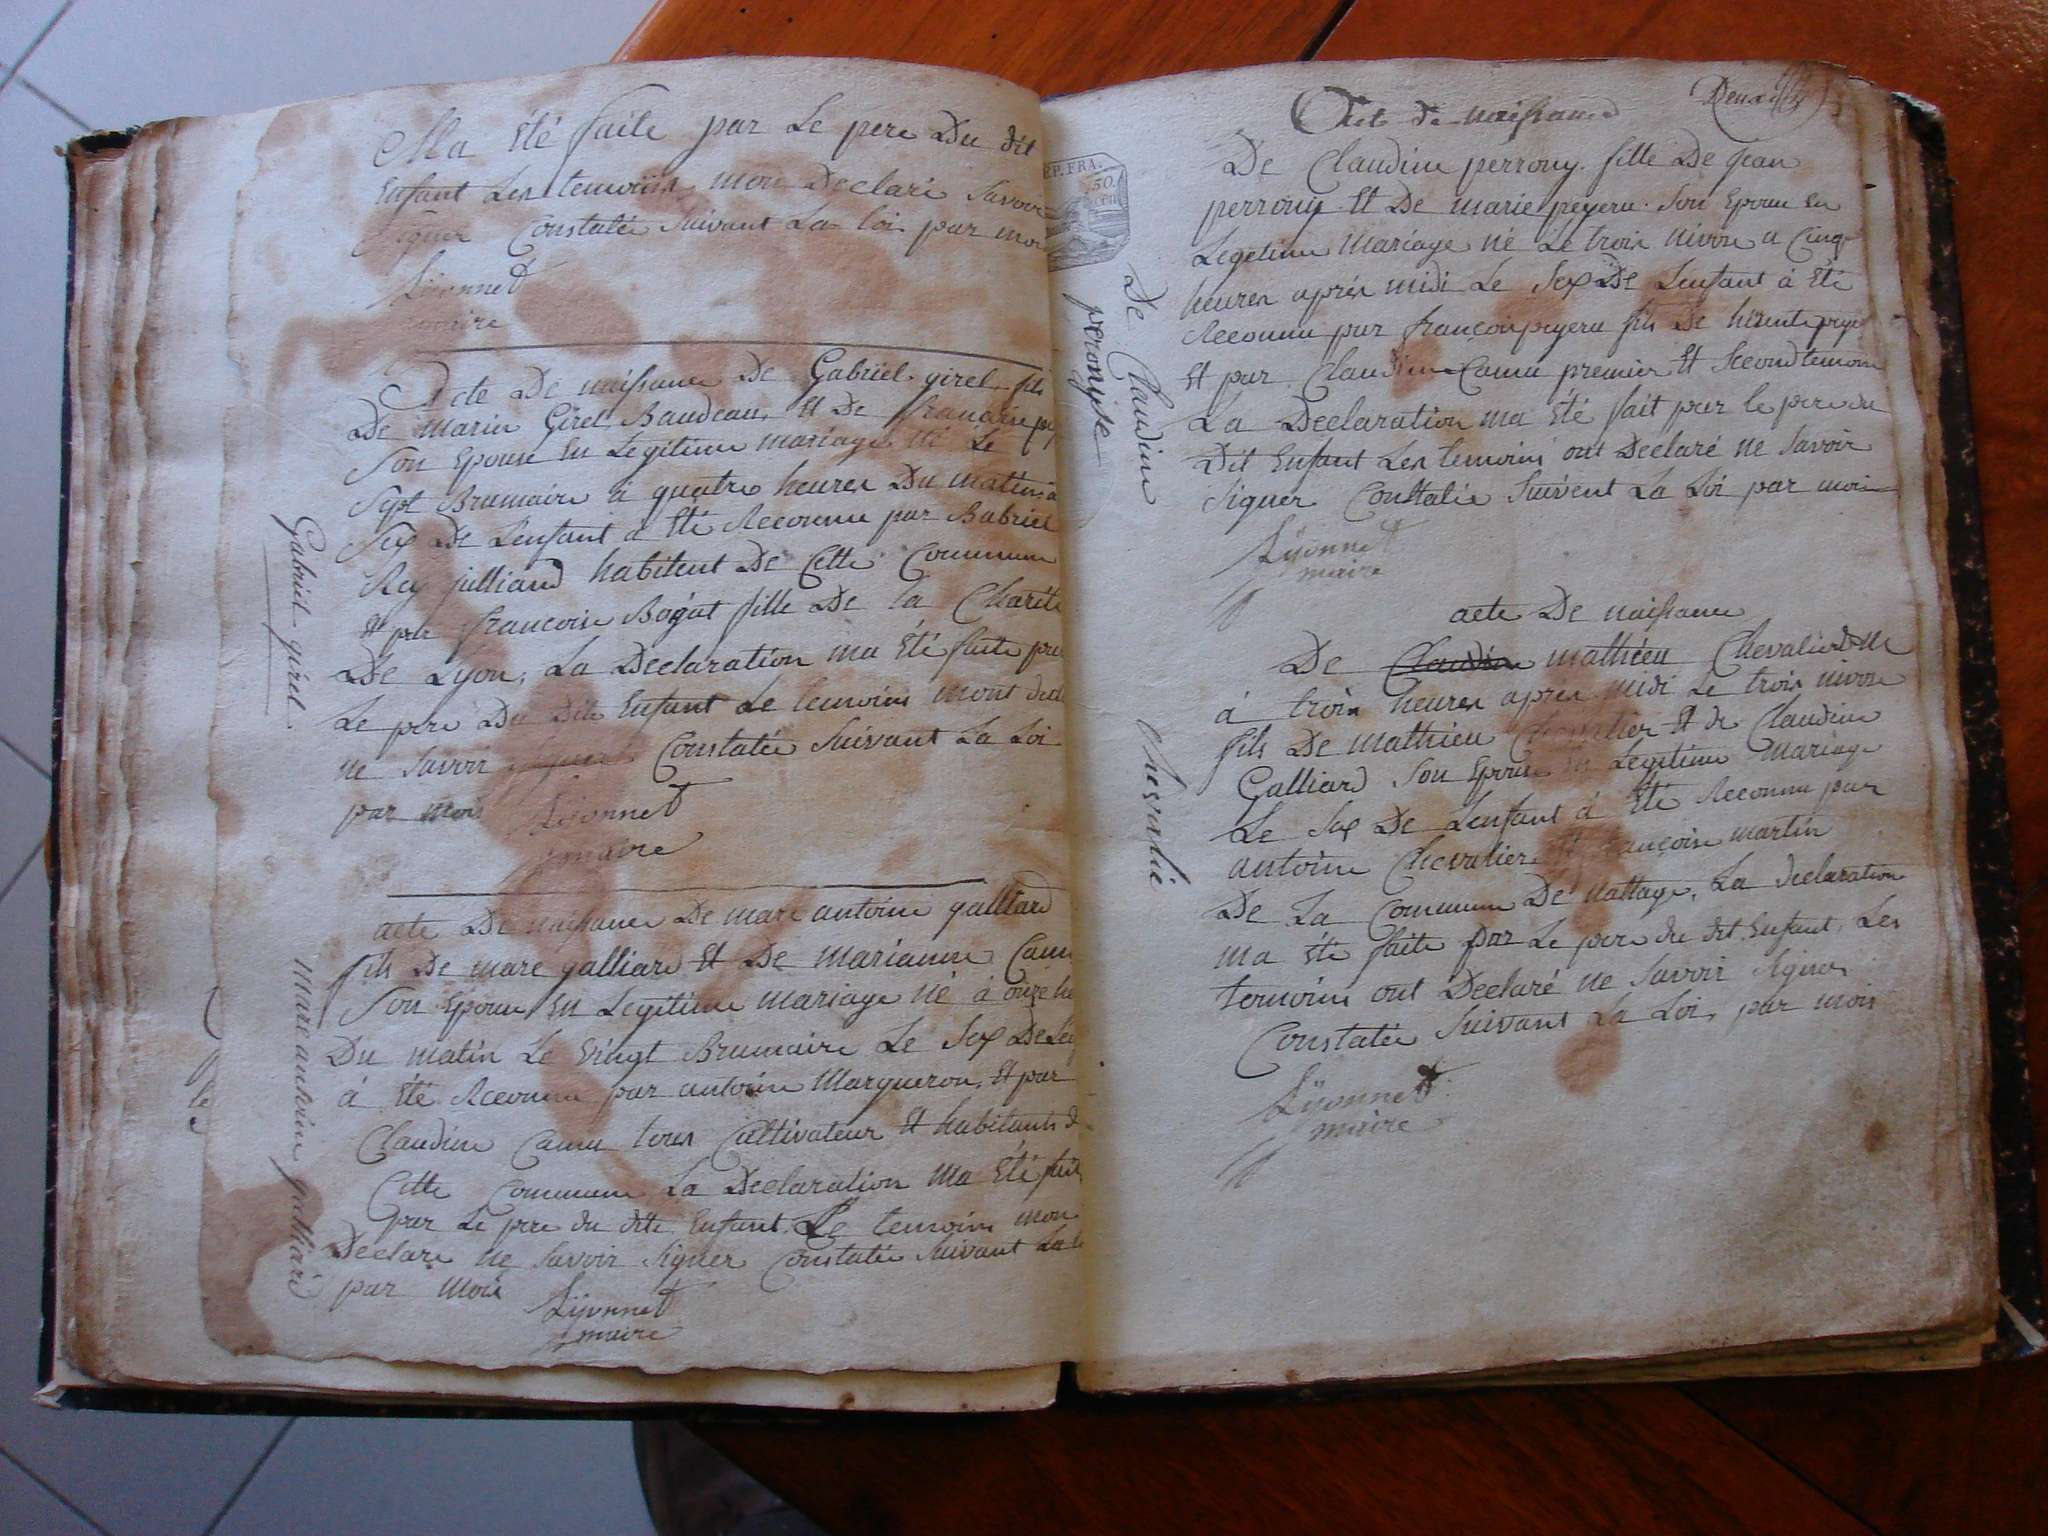 Ma été faite par Le pere Du dit
Enfant Les temoins mon Declaré Savoir
Signer Constatée Suivant La loi par moi
Lyonnet
maire
Acte De naissance De Gabriel girel fils
De marin Girel Baudeau, Et De
Son Epouse En Legitime mariage né Le
Sept Brumaire à quatre heures Du matin
Sex De Lenfant a Eté Reconnu par Babriel
Rey julliand habitent De Cette Commune
Et par francoise Bogat fille De la Charité
De Lyon, La Declaration ma Eté faite par
Le pere Du Dit Enfant Le temoins mont
ne Savoir Signer Constatée Suivant La Loi
par mois Lyonnet
maire
Gabriel girel
acte De naissance De marc antoine galliard
fils De marc galliard Et De marianne Camu
Son Epouse En Legitime mariage né à onze
Du matin Le Vingt Brumaire Le Sex De
à été Reconnu par antoine Marguerou, Et par
Claudine Camu tous Caltivateur Et habitants
Cette Commune La Declaration Ma Eté
par Le pere du dite Enfant Le temoins mon
Declare ne Savoir Signer Constatée Suivant La
par Mois Lyonnet
maire
Marc antoine galliard
EP. FRA.
50.
cen
Acte De naissance
De Claudine perrony fille De jean
perrony Et De marie peyera Son Epouse En
Legetime Mariage né Le trois nivose a Cinq
heures après midi Le Sex De Lenfant à Eté
Reconnu par françois peyera fils De
Et par Claudine Camu premier Et Second temoin
La Declaration ma Eté fait par le pere du
Dit Enfant Les temoins ont Declaré ne Savoir
Signer Constatée Suivent La Loi par moi
Lyonnet
maire
De Claudine
peronyse
acte De naissance
De Claudine mathieu Chevalier
à trois heures après midi Le trois nivose
fils De mathieu Chevalier Et de Claudine
Galliard Son Epouse En Legitime Mariage
Le Sex De Lenfant à Eté Reconnu par
antoine Chevalier Et françoise martin
De La Commune De nattage, La declaration
ma Eté faite par Le pere du dit Enfant, Les
temoins ont Declaré ne Savoir Signer
Constatée Suivant La Loi, par mois
Lyonnet
maire
Chevalié